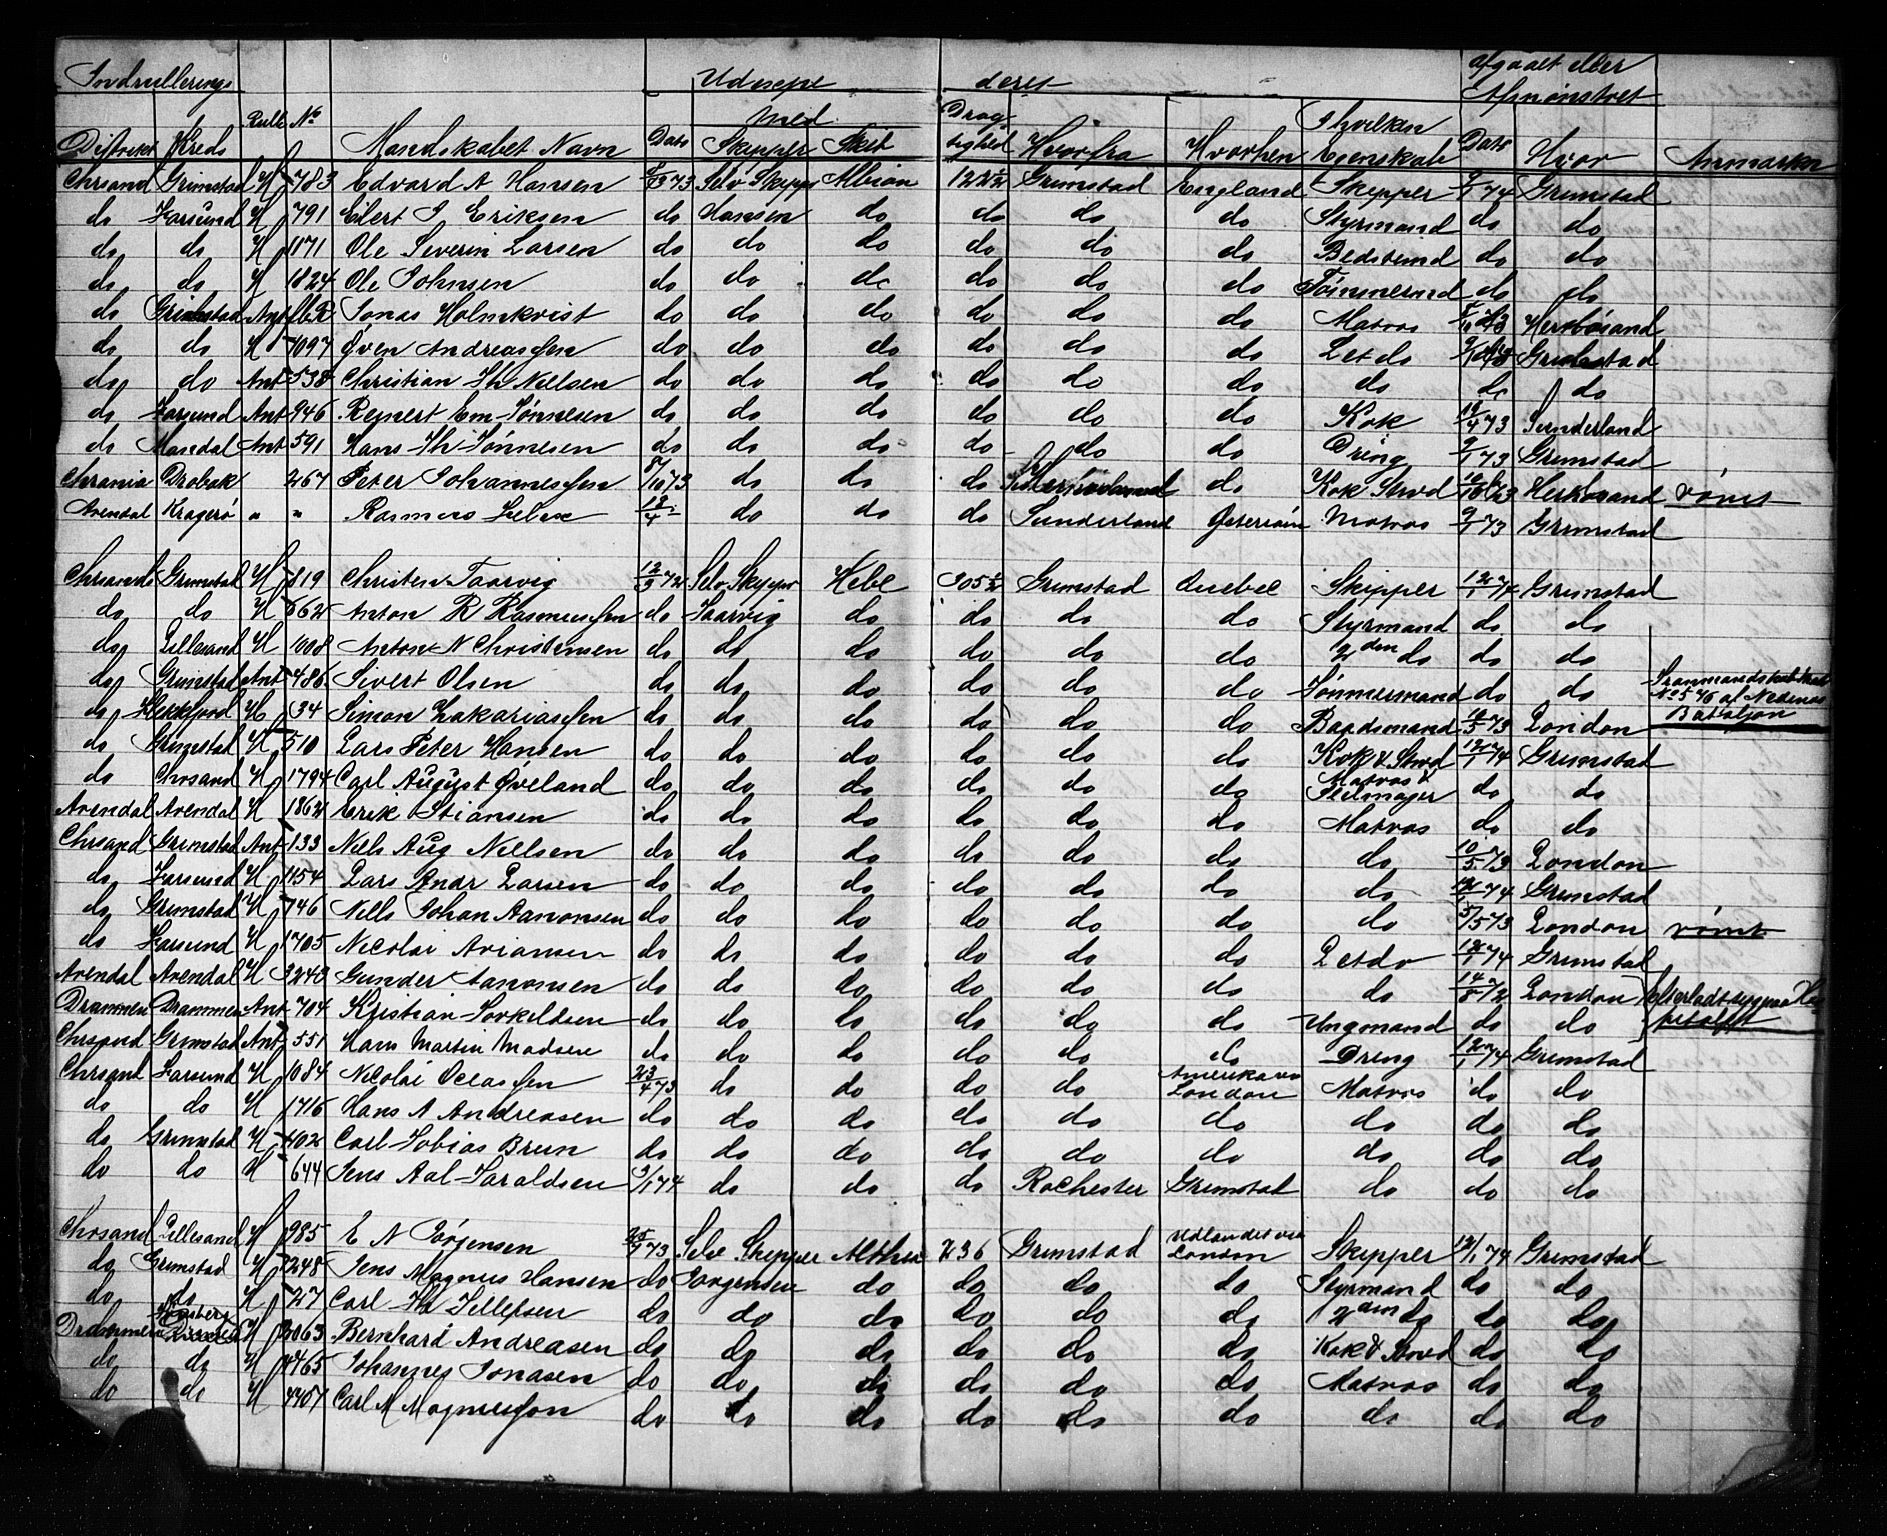 Indrullerings Udseepe deres afgaaet eller
Afmønstret
Rulle No med Dræg I hvilken
Distrikt Kreds Mandskabet Navn Dato Skipper Skib tighed Hvorfra Hvorhen Egenskab Dato Hvor Anmærkn
Chrsand Grimstad H 783 Edvard A Hansen 73 Selv Skipper Albion 122½ Grimstad England Skipper 74 Grimstad
do Farsund H 791 Eilert I Eriksen do Hansen do do do do Styrmand do do
do do H 1171 Ole Severin Larsen do do do do do do Bedstmd do do
do do H 1824 Ole Johnsen do do do do do do Tømmermd do do
do Grimstad Ant Jonas Holmkvist do do do do do do Matros Hernösand
do do H 1097 Öven Andreassen do do do do do do Letdo Grimstad
do do Ant 538 Christian Th Nielsen do do do do do do do do do
do Farsund Ant 946 Reinert Em Tønnesen do do do do do do Kok 73 Sunderland
do Mandal Ant 591 Hans Th Tønnesen do do do do do do Dreng 9/1 73 Grimstad
Chrania Drøbak 267 Peter Johannessen 8/10 73 do do do do Kok Stwd Hernösand rømt
Arendal Kragerø " " Rasmus do do do Sunderland Matros 9/1 73 Grimstad
Chrsand Grimstad H 819 Christen Taarvig 12/3 72 Selv Skipper Hebe 305½ Grimstad Quebec Skipper 12/1 74 Grimstad
do do H 662 Anton R Rasmussen do Taarvig do do do do Styrmand do do
do Lillesand H 1008 Anton N Christensen do do do do do do 2den do do do
do Grimstad Ant 486 Sivert Olsen do do do do do do Tømmermand do do
No 546 af Nedenes
Bataljon
do H 34 Simon Zakariassen do do do do do do Baadsmand 10/5 73 London
do Grimstad H 510 Lars Peter Hansen do do do do do do Kok & Stwd 12/1 74 Grimstad
do Chrsand H 1794 Carl August Øveland do do do do do do Matros & Seilmager do do
Arendal Arendal H 1862 Erik Stiansen do do do do do do Matros do do
Chrsand Grimstad Ant 133 Nils Aug Nilsen do do do do do do do 10/5 73 London
do Farsund H 1154 Lars Andr Larsen do do do do do do do 12/1 74 Grimstad
do Grimstad H 746 Nils Johan Aanonsen do do do do do do do 5/5 73 London rømt
do Farsund H 1705 Nicolai Ariansen do do do do do do Letdo 12/1 74 Grimstad
Arendal Arendal H 3243 Gunder Aanonsen do do do do do do do London
Drammen Drammen Ant 704 Kristian Torkildsen do do do do do do Ungmand do do
Chrsand Grimstad Ant 551 Hans Martin Madsen do do do do do do Dreng 12/1 74 Grimstad
Chrsand Farsund H 1084 Nicolai Oleassen 23/4 73 do do do do Amerika via London Matros do do
do do H 1716 Hans A Andreasen do do do do do do do do do
do Grimstad H 402 Carl Tobias Brun do do do do do do do do do
do do H 644 Jens Aal Taraldsen 3/1 74 do do do Rochester Grimstad do do do
Chrsand Lillesand H 985 E N Jørgensen 73 Selv Skipper Althea 236 Grimstad Udlandet via London Skipper 12/1 74 Grimstad
do Grimstad H 248 Jens Magnus Hansen do Jørgensen do do do do Styrmand do do
do do H 27 Carl Th Tellefsen do do do do do do 2den do do do
Drammen H 3063 Bernhard Andreasen do do do do do do Kok & Stwd do do
do do H 4465 Johannes Jonasen do do do do do do Matros do do
do do H 4407 Carl M Magnussen do do do do do do do do do